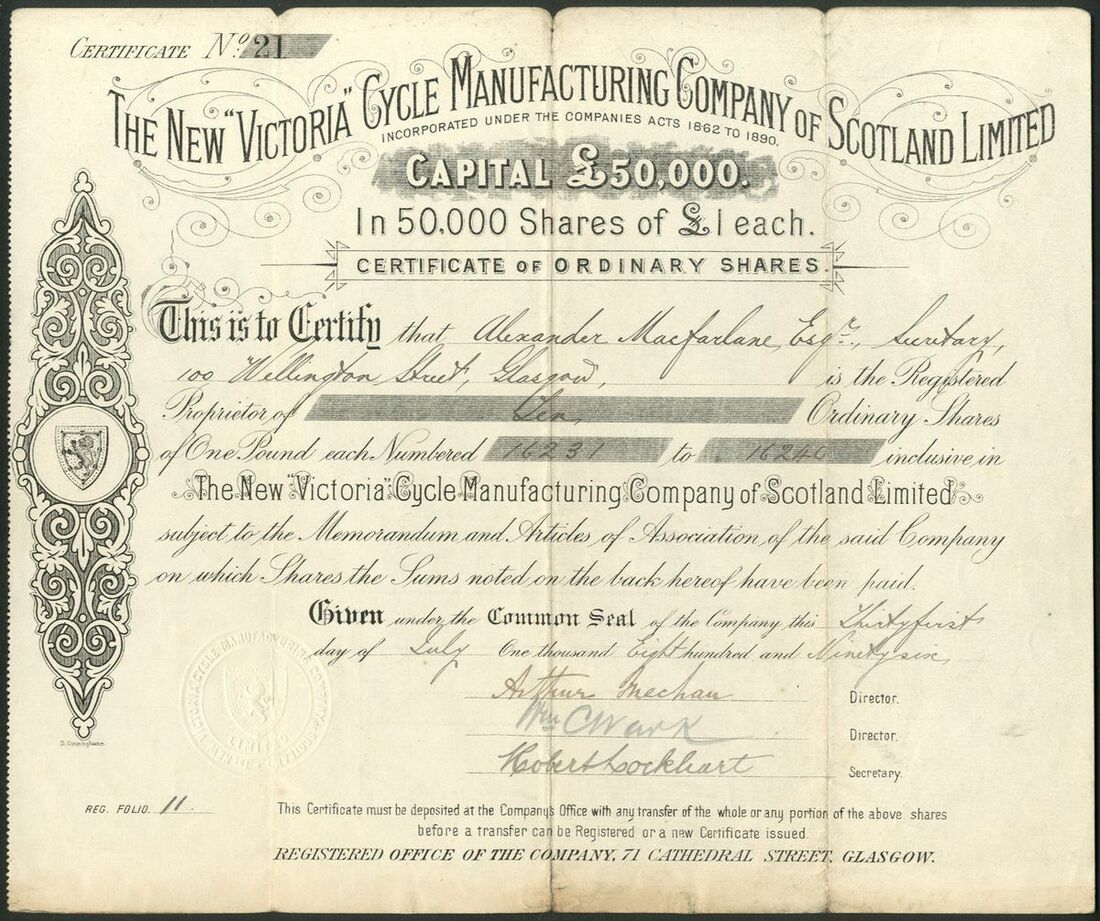 CERTIFICATE No. 21
THE NEW "VICTORIA" CYCLE MANUFACTURING COMPANY OF SCOTLAND LIMITED
INCORPORATED UNDER THE COMPANIES ACTS 1862 TO 1890.
CAPITAL £50,000.
In 50,000 Shares of £1 each.
CERTIFICATE OF ORDINARY SHARES.
This is to Certify that Alexander Macfarlane, Esqr., Secretary,
100 Wellington Street, Glasgow, is the Registered
Proprietor of Ten Ordinary Shares
of One Pound each Numbered 16231 to 16240 inclusive in
The New "Victoria" Cycle Manufacturing Company of Scotland Limited
subject to the Memorandum and Articles of Association of the said Company
on which Shares the Sums noted on the back hereof have been paid.
Given under the Common Seal of the Company this Thirtyfirst
day of July One thousand Eight hundred and Ninety six
Arthur Mechan Director.
Wm C Wark Director.
Robert Lockhart Secretary.
D. Cunninghame.
REG. FOLIO. 11.
This Certificate must be deposited at the Company's Office with any transfer of the whole or any portion of the above shares
before a transfer can be Registered or a new Certificate issued.
REGISTERED OFFICE OF THE COMPANY, 71 CATHEDRAL STREET, GLASGOW.